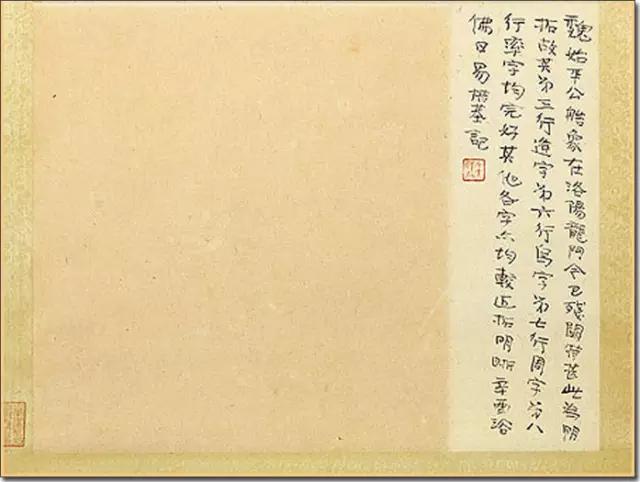 魏始平公艁象在洛陽龍門今已殘闕甚此為明
拓故其第三行造字第六行烏字第七行周字第八
行率字均完好其他各字亦均較近拓明晰辛酉浴
佛日易培基記